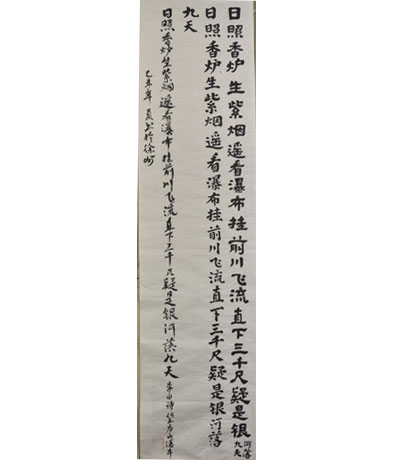 日照香炉生紫烟遥看瀑布挂前川飞流直下三千尺疑是银河落九天
日照香炉生紫烟遥看瀑布挂前川飞流直下三千尺疑是银河落
九天
日照香炉生紫烟遥看瀑布挂前川飞流直下三千尺疑是银河落九天李白诗望庐山瀑布
乙未年夏书於徐州